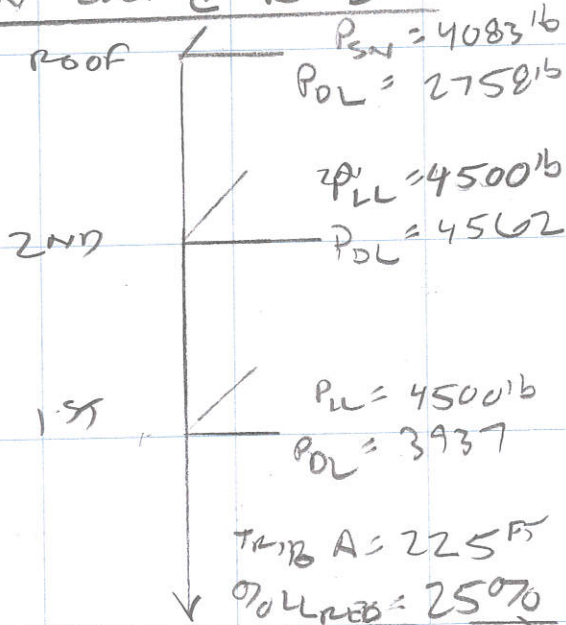 ROOF
PSN = 4083 lb
PDL = 2758 lb
PLL = 4500 lb
2ND
PDL = 4562
PLL = 4500 lb
1ST
PDL = 3937
TRIB A = 225 FT
% LL RED = 25%